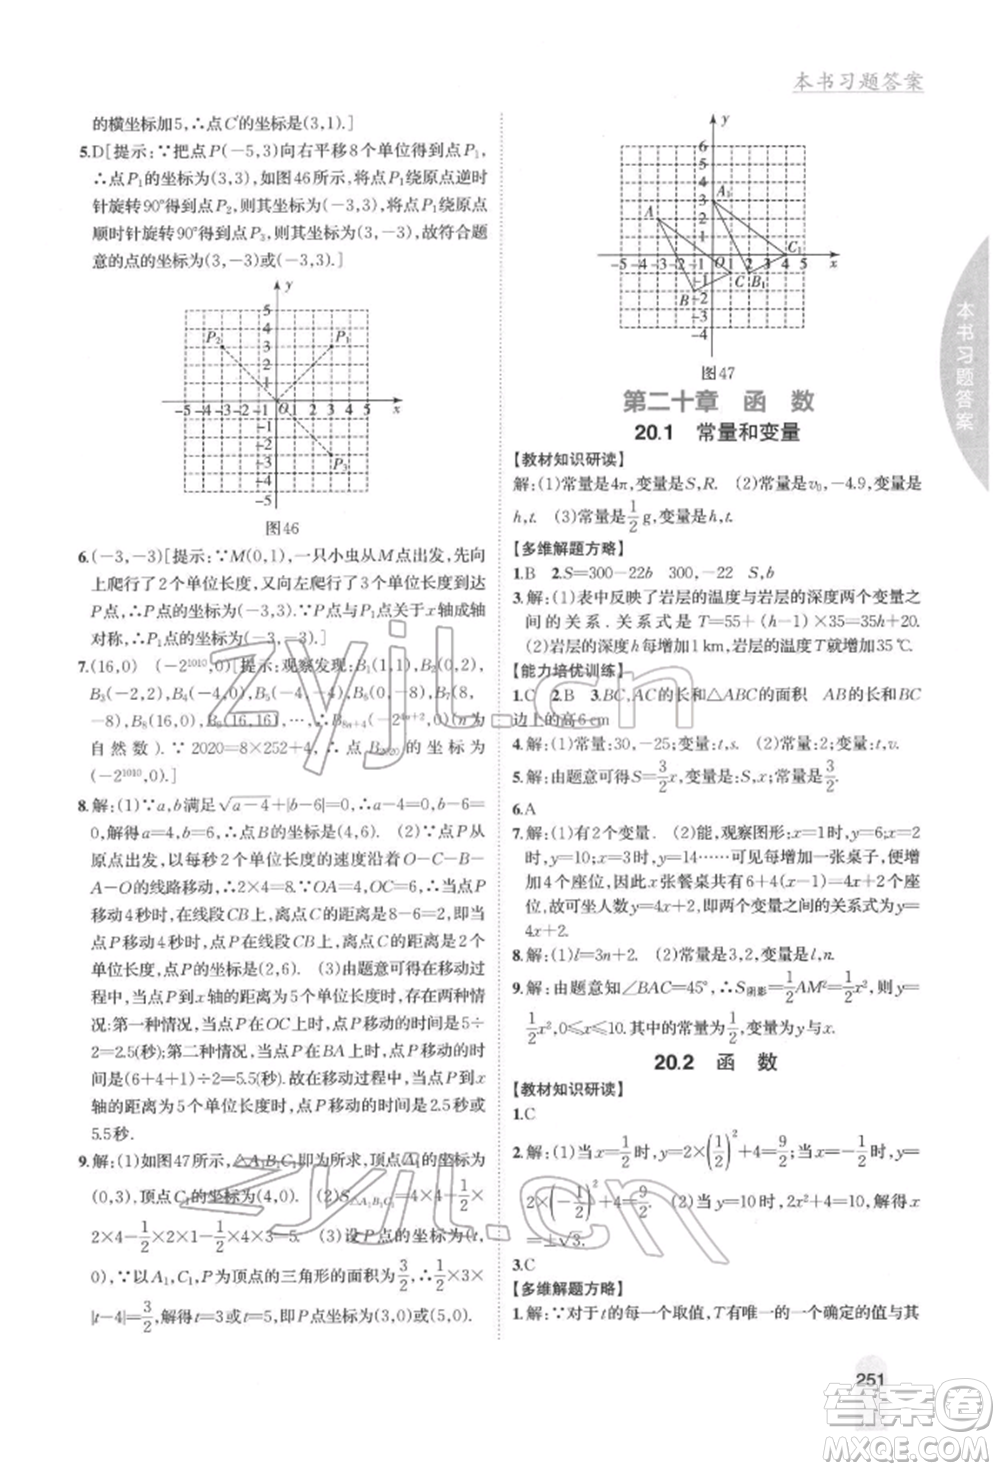 本书习题答案
的横坐标加5,∴点C′的坐标是(3,1).]
5.D[提示:∵把点P(-5,3)向右平移8个单位得到点P₁,
∴点P₁的坐标为(3,3),如图46所示,将点P₁绕原点逆时
针旋转90°得到点P₂,则其坐标为(-3,3),将点P₁绕原点
顺时针旋转90°得到点P₃,则其坐标为(3,-3),故符合题
意的点的坐标为(3,-3)或(-3,3).]
图46
6.(-3,-3)[提示:∵M(0,1),一只小虫从M点出发,先向
上爬行了2个单位长度,又向左爬行了3个单位长度到达
P点,∴P点的坐标为(-3,3).∵P与P₁点关于x轴成轴
对称,∴P₁点的坐标为(-3,-3).]
7.(16,0) (-2¹⁰¹⁰,0)[提示:观察发现:B₁(0,1),B₂(0,2),
B₃(-2,2),B₄(-4,0),B₅(-4,-4),B₆(0,-8),B₇(8,
-8),B₈(16,0),B₉(16,16),…,∴B₈ₙ₊₄(-2⁴ⁿ⁺²,0)(n为
自然数).∵2020=8×252+4,∴点B₂₀₂₀的坐标为
(-2¹⁰¹⁰,0).]
8.解:(1)∵a,b满足√(a-4)+|b-6|=
0,解得a=4,b=6,∴点B的坐标为(4,6). (2)∵点P从
原点出发,以每秒2个单位长度的速度沿着O-C-B-
A-O的线路移动,∴2×4=8.∵OA=4,OC=6,∴当点P
移动4秒时,在线段CB上,离点C的距离是8-6=2,即当
点P移动4秒时,此时点P在线段CB上,离点C的距离是2
个单位,点P的坐标是(2,6). (3)由题意可得在移动过
程中,当点P到x轴的距离为5个单位长度时,存在两种情
况:第一种情况,当点P在OC上时,点P移动的时间是5÷
2=2.5(秒);第二种情况,当点P在BA上时,点P移动的时间是
(6+4+1)÷2=5.5(秒).故在移动过程中,当点P到x
轴的距离为5个单位长度时,点P移动的时间是2.5秒或
5.5秒.
9.解:(1)如图47所示,△A₁B₁C₁即为所求,顶点A₁的坐标为
(0,3),顶点C₁的坐标为(4,0). (2)S△A₁B₁C₁=4×4-1/2×
2×4-1/2×2×1-1/2×4×3=5. (3)设P点的坐标为(t,
0),∵以A₁,C₁,P为顶点的三角形的面积为3/2,∴1/2×3×
|t-4|=3/2,解得t=3或t=5,即P点坐标为(3,0)或(5,0).
图47
第二十章 函 数
20.1 常量和变量
【教材知识研读】
解:(1)常量是4π,变量是S,R. (2)常量是v₀,-4.9,变量是
h,t. (3)常量是1/2g,变量是h,t.
【多维解题方略】
1.B 2.S=300-22b 300,-22 S,b
3.解:(1)表中反映了岩层的温度与岩层的深度两个变量之
间的关系.关系式是T=55+(h-1)×35=35h+20.
(2)岩层的深度h每增加1 km,岩层的温度T就增加35 ℃.
【能力培优训练】
1.C 2.B 3.BC,AC的长与△ABC的面积 AC的长和BC
边上的高6 cm
4.解:(1)常量:30,-25;变量:t,s. (2)常量:12;变量:t,v.
5.解:由题意可得S=3/2x,变量是:S,x;常量是:3/2.
6.A
7.解:(1)有2个变量. (2)能,观察图形:x=1时,y=6;x=2
时,y=10;x=3时,y=14……可见每增加一张桌子,便增加
4个座位,因此x张餐桌共有6+4(x-1)=4x+2个座
位,故可坐人数y=4x+2,即两个变量之间的关系式为y=
4x+2.
8.解:(1)l=3n+2. (2)常量是3,2,变量是l,n.
9.解:由题意知∠BAC=45°,∴S阴影=1/2AM²=1/2x²,则y=
1/2x²,0≤x≤10.其中的常量为1/2,变量为y与x.
20.2 函 数
【教材知识研读】
1.C
2.解:(1)当x=1/2时,y=2×(1/2)²+4=9/2;当x=-1/2时,y=
2×(-1/2)²+4=9/2. (2)当y=10时,2x²+4=10,解得x
=±√3.
3.C
【多维解题方略】
1.解:∵对于t的每一个取值,T有唯一的一个确定的值与其
本书习题答案
251
zyjl.cn
zyjl.cn
答案圈
MXQE.COM